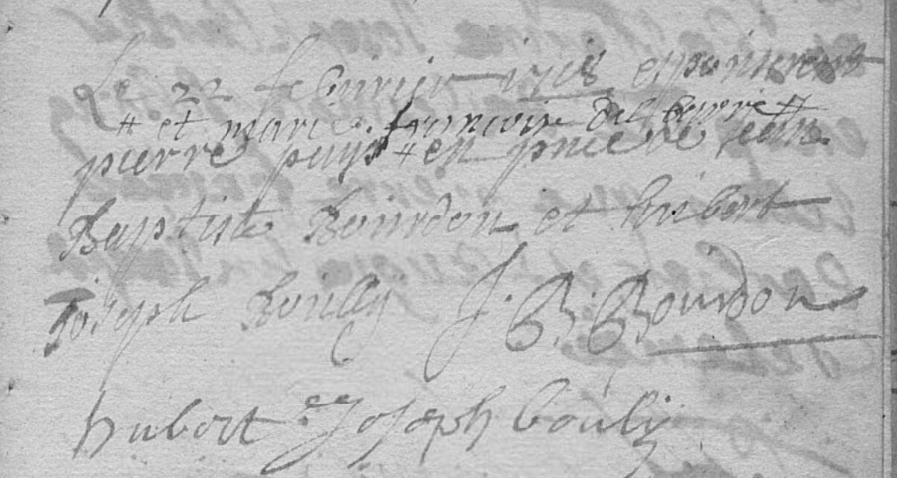 Le 22 febvrier epouserent
# et marie francoise #
pierre puis # en jean
Baptiste Bourdon et hubert
Joseph Bouly J. B. Bourdon
hubert Joseph bouly